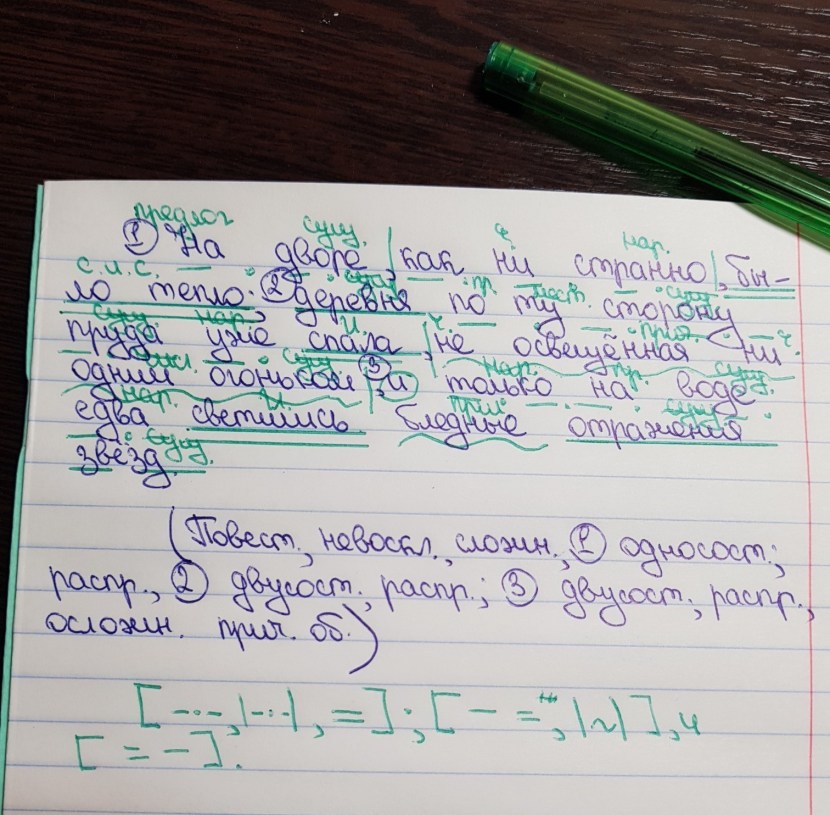 предлог сущ. нар.
① На дворе, как ни странно, бы-
с.и.с. сущ. пр. мест. сущ.
ло тепло; ② деревня по ту сторону
сущ. нар. ч. прич. ч.
пруда уже спала, не освещённая ни
сущ. ③ нар. пр. сущ.
одним огоньком, и только на воде
нар. гл. прил. сущ.
едва светились бледные отражения
сущ.
звезд.
(Повест., невоскл., сложн., ① односост.;
распр., ② двусост., распр.; ③ двусост., распр.,
осложн. прич. об.)
[-·-·, |-·-|, =]; [- =, |~|], и
[= -].